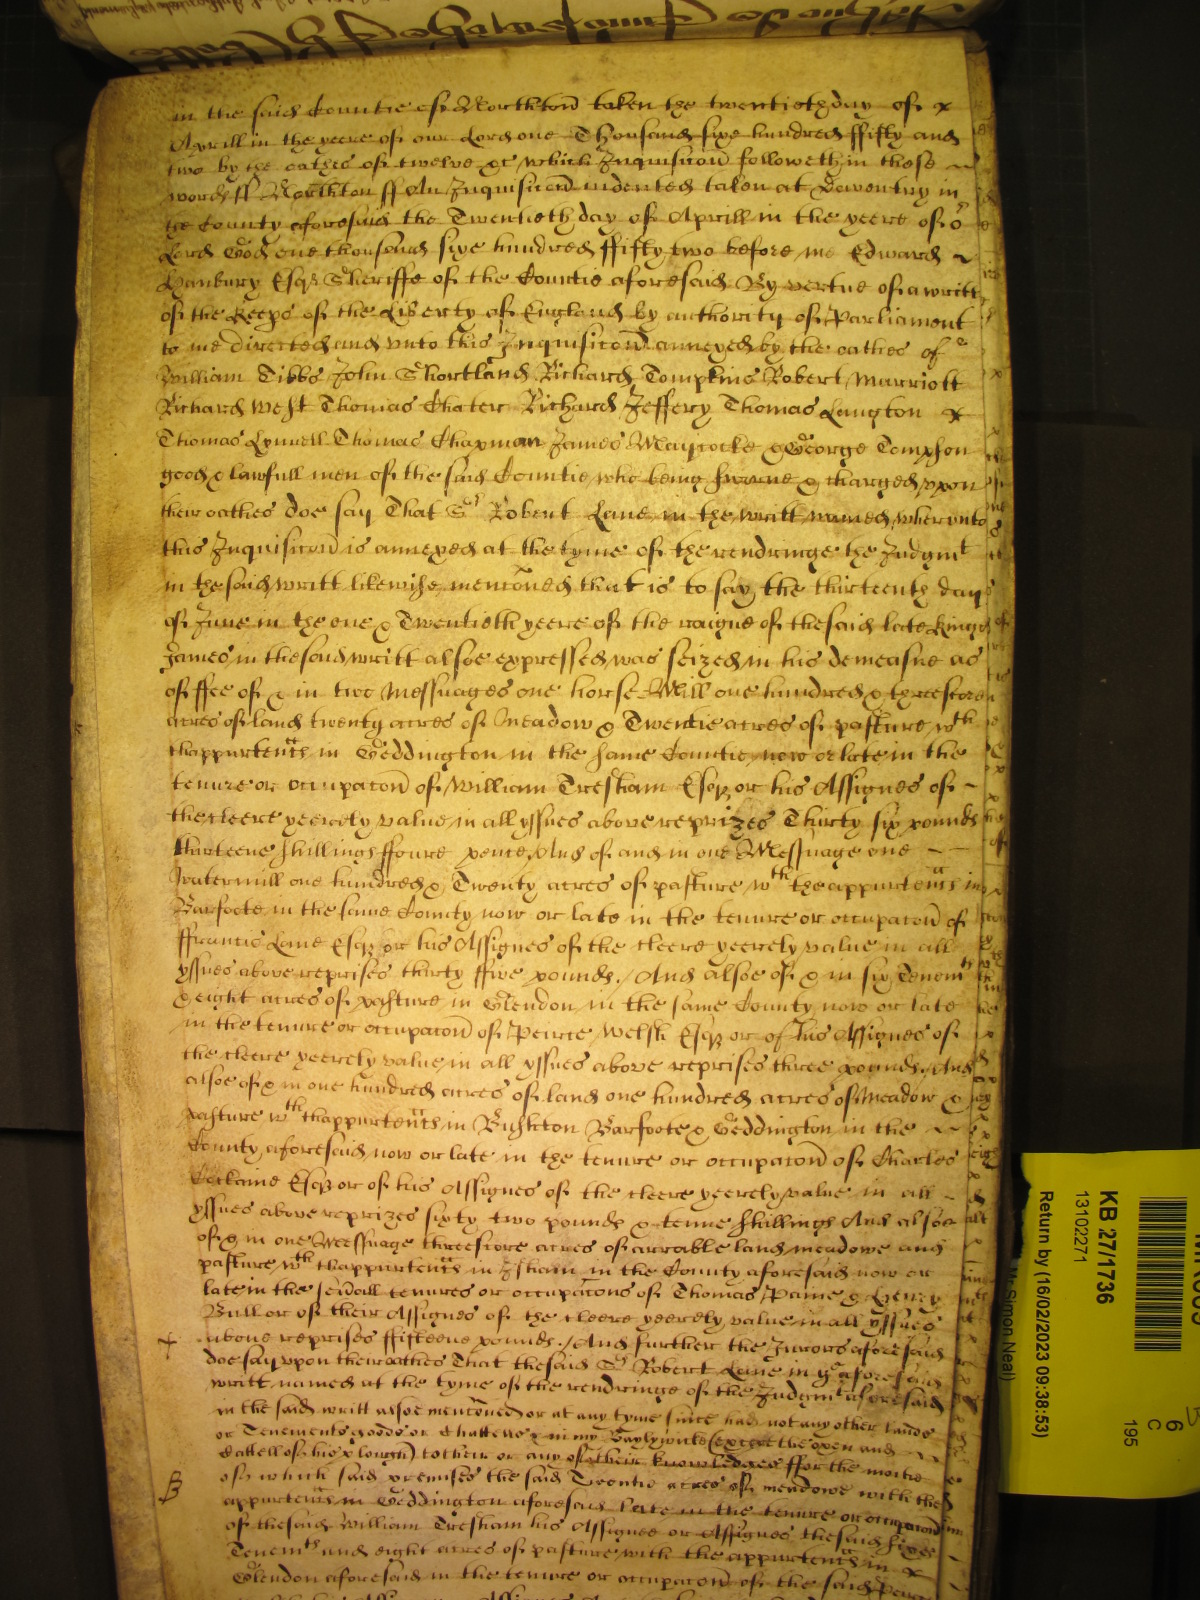 in the said Countie of Northton taken the twentieth day of
Aprill in the yeere of our Lord one Thousand sixe hundred ffifty and
two by the oathes of twelve &c which Inquisicon followeth in these
words ss Northton ss An Inquisicon indented taken at Daventry in
the County aforesaid the Twentieth day of Aprill in the yeere of or
Lord God one thousand sixe hundred ffifty two before me Edward
Hanbury Esqr Sheriffe of the Countie aforesaid By vertue of a writt
of the Keeps of the Liberty of England by authority of Parliament
to me directed and vnto this Inquisicon annexed by the oathes of
William Tibbs John Shortland Richard Tompkins Robert Marriott
Richard West Thomas Chater Richard Jeffery Thomas Langton
Thomas Lynnell Thomas Chapman James Maycocke & George Tompson
good & lawfull men of the said Countie who being sworne & charged vpon
their oathes doe say That Sr Robert Lane in the writt named wherevnto
this Inquisicon is annexed at the tyme of the rendringe the Judgmt
in the said writt likewise menconed that is to say the thirteenth day
of June in the one & Twentieth yeere of the raigne of the said late Kinge
James in the said writt alsoe expressed was seized in his demeasne as
of ffee of & in two Messuages one horse Mill one hundred & threescore
acres of land twenty acres of Meadow & Twentie acres of pasture wth
thappurtenncs in Geddington in the same Countie now or late in the
tenure or occupacon of William Tresham Esqr or his Assignes of
the cleere yeerely value in all yssues above reprizes Thirty six pounds
thirteene shillings ffoure pence And of and in one Messuage one
Watermill one hundred & Twenty acres of pasture wth the appurtenncs in
Barfoote in the same County now or late in the tenure or occupacon of
ffrancis Lane Esqr or his Assignes of the cleere yeerely value in all
yssues above reprises thirty ffive pounds. And alsoe of & in six Tenemts
& eight acres of pasture in Glendon in the same County now or late
in the tenure or occupacon of Peirce Welsh Esqr or of his Assignes of
the cleere yeerely value in all yssues above reprises three pounds. And
alsoe of & in one hundred acres of land one hundred acres of Meadow &
pasture wth thappurtenncs in Rushton Barfoote & Geddington in the
County aforesaid now or late in the tenure or occupacon of Charles
Cockaine Esqr or of his Assignes of the cleere yeerely value in all
yssues above reprizes sixty two pounds & tenne shillings And alsoe
of & in one Messuage threescore acres of arrable land meadowe and
pasture wth thappurtenncs in Isham in the County aforesaid now or
late in the sevrall tenures or occupacons of Thomas Paine & Henry
Bull or of their Assignes of the cleere yeerely value in all yssues
above reprises ffifteene pounds. And further the Jurors aforesaid
doe say vpon their oathes That the said Sr Robert Lane in ye aforesaid
writt named at the tyme of the rendringe of the Judgmt aforesaid
in the said writt alsoe menconed or at any tyme since had not any other lands
or Tenements goods or Chattells in my Baylywicke (except the oxen and
Cattell of his plough) to their or any of their knowledges ffor the moitie
of which said premises the said Twentie acres of meadowe with the
appurtenncs in Geddington aforesaid late in the tenure or occupacon
of the said William Tresham his Assignee or Assignes the said sixe
Tenemts and eight acres of pasture with the appurtenncs in
Glendon aforesaid in the tenure or occupacon of the said Peirce
KB 27/1736
13102271
Return by (16/02/2023 09:38:53)
Simon Neal)
6
C
195